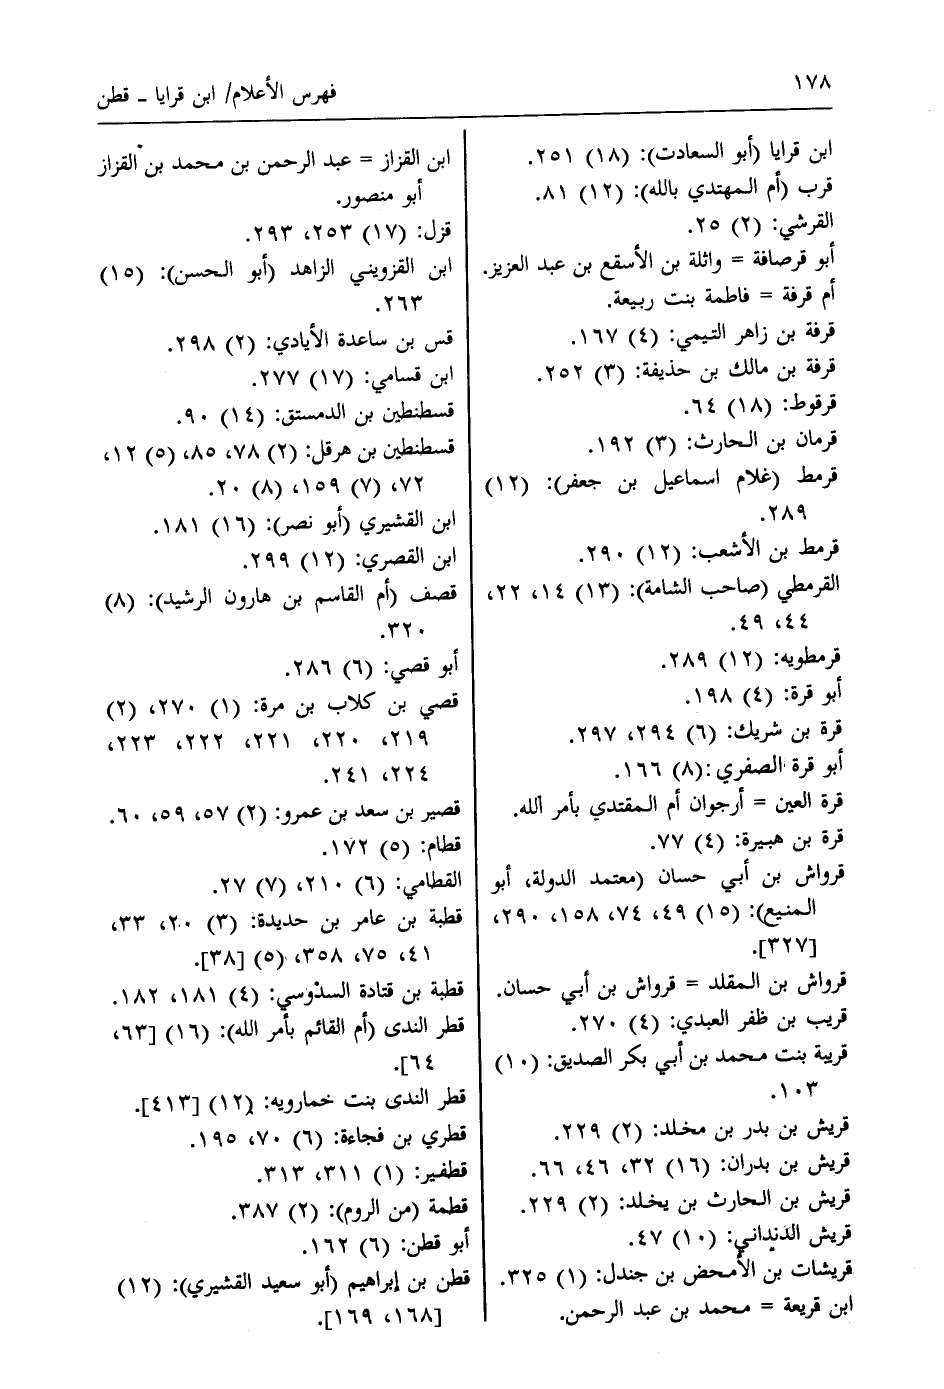 ١٧٨
فهرس الأعلام/ ابن قرايا ـ قطن
ابن قرايا (أبو السعادت): (١٨) ٢٥١.
قرب (أم المهتدي بالله): (١٢) ٨١.
القرشي: (٢) ٢٥.
أبو قرصافة = واثلة بن الأسقع بن عبد العزيز.
أم قرفة = فاطمة بنت ربيعة.
قرفة بن زاهر التيمي: (٤) ١٦٧.
قرفة بن مالك بن حذيفة: (٣) ٢٥٢.
قرقوط: (١٨) ٦٤.
قرمان بن الحارث: (٣) ١٩٢.
قرمط (غلام اسماعيل بن جعفر): (١٢)
٢٨٩.
قرمط بن الأشعب: (١٢) ٢٩٠.
القرمطي (صاحب الشامة): (١٣) ١٤، ٢٢،
٤٤، ٤٩.
قرمطويه: (١٢) ٢٨٩.
أبو قرة: (٤) ١٩٨.
قرة بن شريك: (٦) ٢٩٤، ٢٩٧.
أبو قرة الصفري: (٨) ١٦٦.
قرة العين = أرجوان أم المقتدي بأمر الله.
قرة بن هبيرة: (٤) ٧٧.
قرواش بن أبي حسان (معتمد الدولة، أبو
المنيع): (١٥) ٤٩، ٧٤، ١٥٨، ٢٩٠،
[٣٢٧].
قرواش بن المقلد = قرواش بن أبي حسان.
قريب بن ظفر العبدي: (٤) ٢٧٠.
قريبة بنت محمد بن أبي بكر الصديق: (١٠)
١٠٣.
قريش بن بدر بن مخلد: (٢) ٢٢٩.
قريش بن بدران: (١٦) ٣٢، ٤٦، ٦٦.
قريش بن الحارث بن يخلد: (٢) ٢٢٩.
قريش الدنداني: (١٠) ٤٧.
قريشات بن الأمحض بن جندل: (١) ٣٢٥.
ابن قريعة = محمد بن عبد الرحمن.
ابن القزاز = عبد الرحمن بن محمد بن القزاز
أبو منصور.
قزل: (١٧) ٢٥٣، ٢٩٣.
ابن القزويني الزاهد (أبو الحسن): (١٥)
٢٦٣.
قس بن ساعدة الأيادي: (٢) ٢٩٨.
ابن قسامي: (١٧) ٢٧٧.
قسطنطين بن الدمستق: (١٤) ٩٠.
قسطنطين بن هرقل: (٢) ٧٨، ٨٥، (٥) ١٢،
٧٢، (٧) ١٥٩، (٨) ٢٠.
ابن القشيري (أبو نصر): (١٦) ١٨١.
ابن القصري: (١٢) ٢٩٩.
قصف (أم القاسم بن هارون الرشيد): (٨)
٣٢٠.
أبو قصي: (٦) ٢٨٦.
قصي بن كلاب بن مرة: (١) ٢٧٠، (٢)
٢١٩، ٢٢٠، ٢٢١، ٢٢٢، ٢٢٣،
٢٢٤، ٢٤١.
قصير بن سعد بن عمرو: (٢) ٥٧، ٥٩، ٦٠.
قطام: (٥) ١٧٢.
القطامي: (٦) ٢١٠، (٧) ٢٧.
قطبة بن عامر بن حديدة: (٣) ٢٠، ٣٣،
٤١، ٧٥، ٣٥٨، (٥) [٣٨].
قطبة بن قتادة السدوسي: (٤) ١٨١، ١٨٢.
قطر الندى (أم القائم بأمر الله): (١٦) [٦٣،
٦٤].
قطر الندى بنت خمارويه: (١٢) [٤١٣].
قطري بن فجاءة: (٦) ٧٠، ١٩٥.
قطفير: (١) ٣١١، ٣١٣.
قطمة (من الروم): (٢) ٣٨٧.
أبو قطن: (٦) ١٦٢.
قطن بن إبراهيم (أبو سعيد القشيري): (١٢)
[١٦٨، ١٦٩].